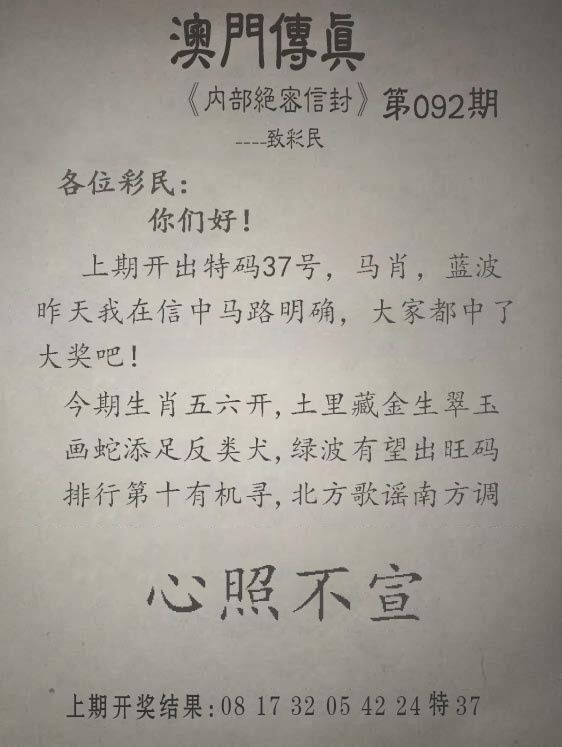 澳門傳眞
《内部絕密信封》第092期
----致彩民
各位彩民：
你们好！
上期开出特码37号，马肖，蓝波
昨天我在信中马路明确，大家都中了
大奖吧！
今期生肖五六开,土里藏金生翠玉
画蛇添足反类犬,绿波有望出旺码
排行第十有机寻,北方歌谣南方调
心照不宣
上期开奖结果:08 17 32 05 42 24 特37